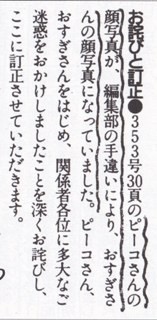 お詫びと訂正●353号30頁のピーコさんの
顔写真が、編集部の手違いにより、おすぎさ
んの顔写真になっていました。ピーコさん、
おすぎさんをはじめ、関係者各位に多大なご
迷惑をおかけしましたことを深くお詫びし、
ここに訂正させていただきます。